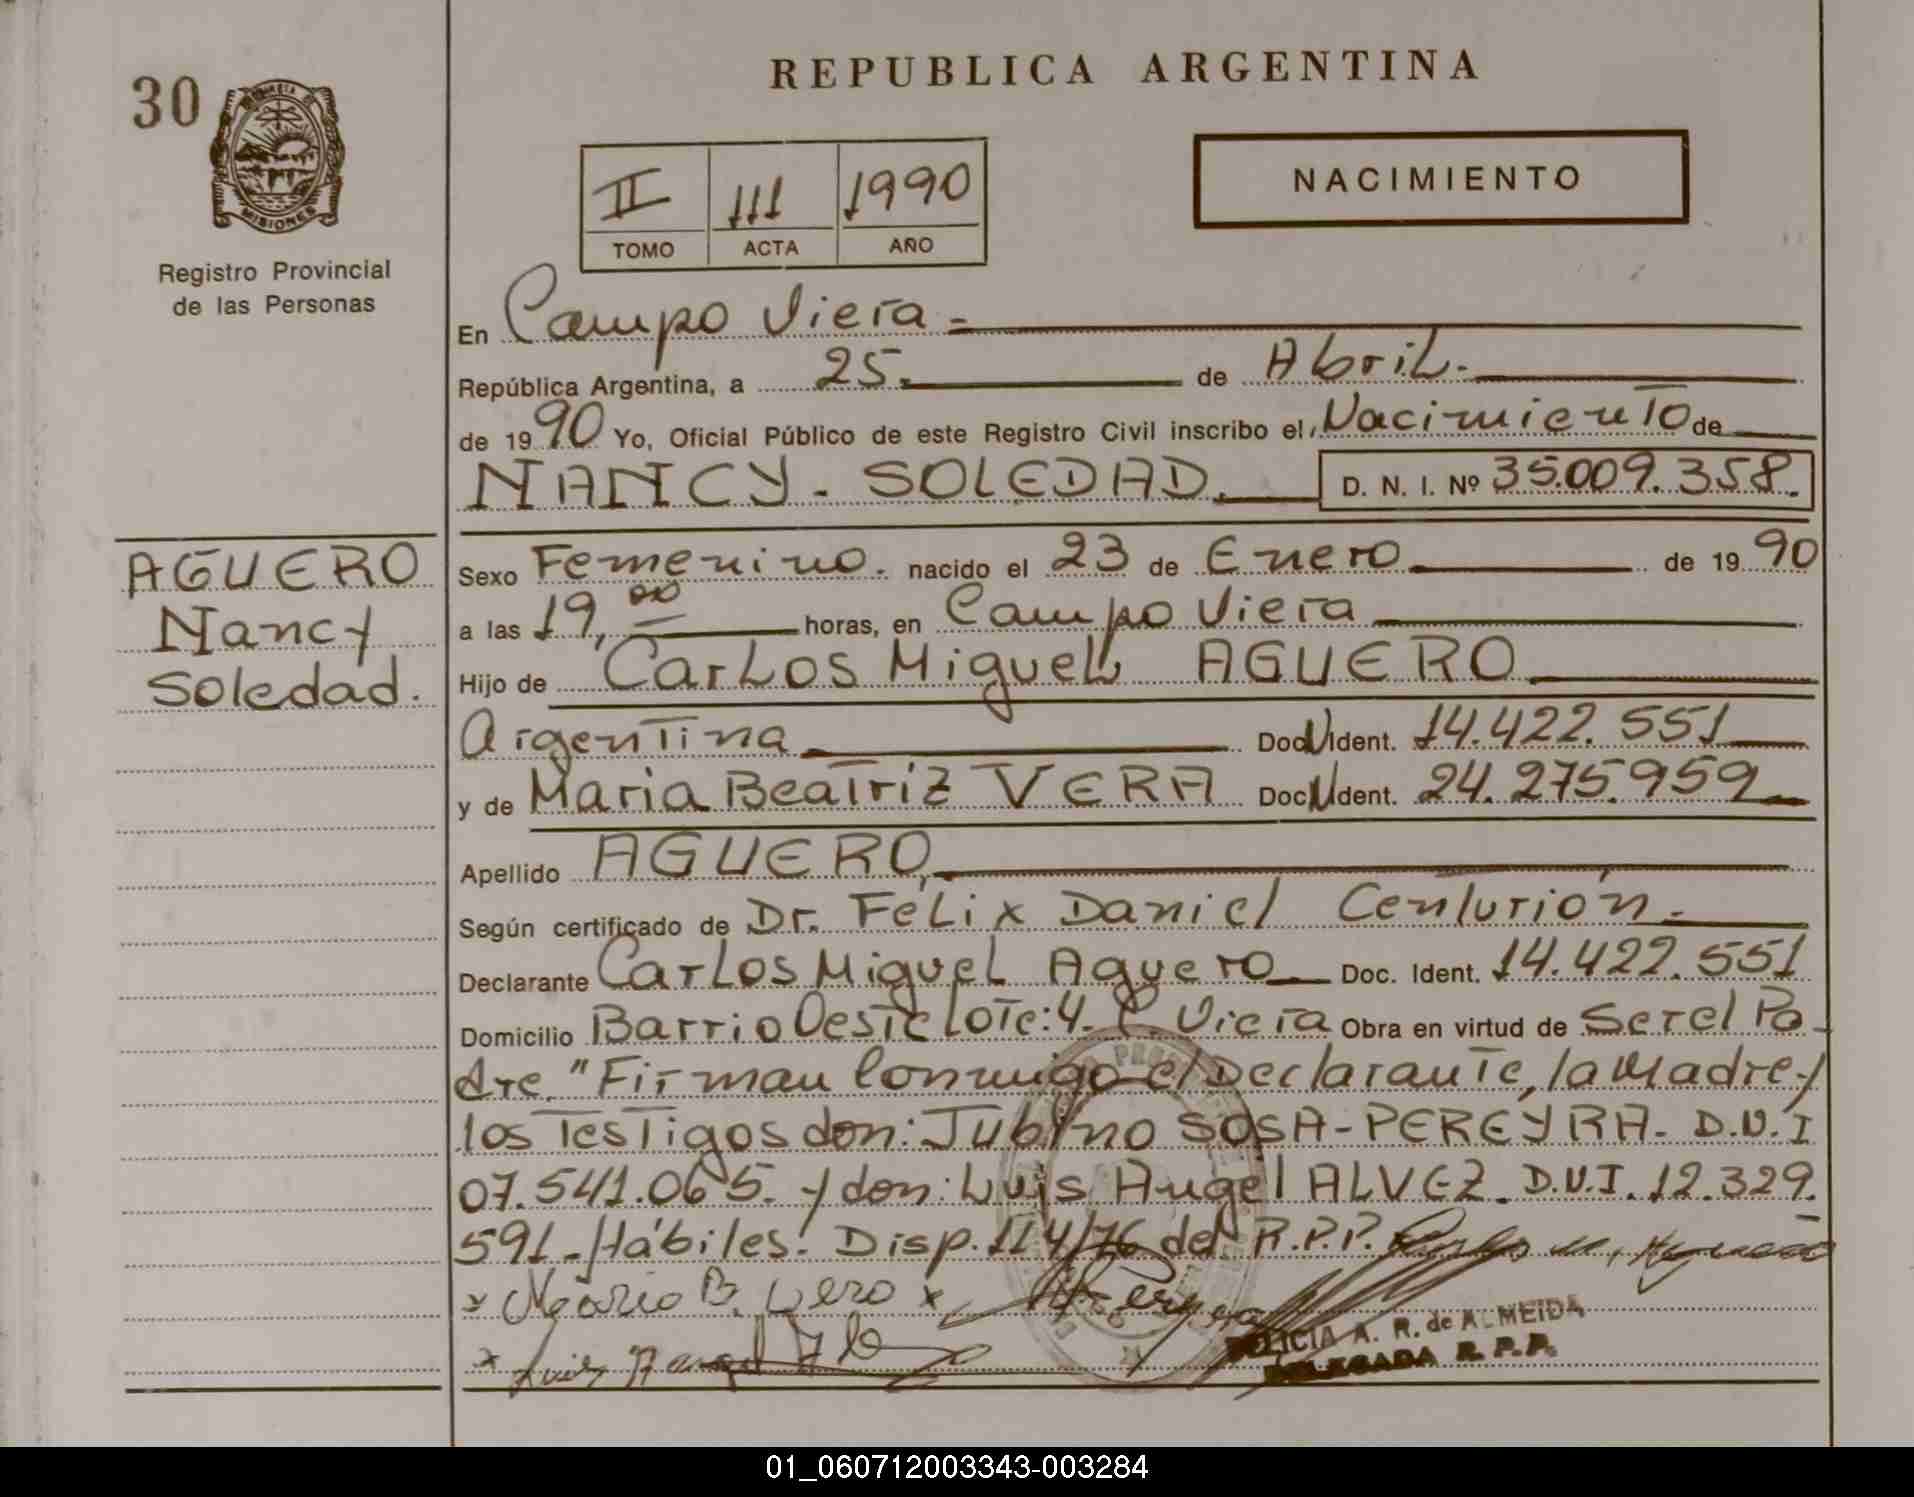 30
MISIONES
Registro Provincial
de las Personas
REPUBLICA ARGENTINA
II 111 1990
TOMO ACTA AÑO
NACIMIENTO
En Campo Viera.-
República Argentina, a 25.- de Abril.-
de 1990 Yo, Oficial Público de este Registro Civil inscribo el Nacimiento de
NANCY - SOLEDAD. D. N. I. Nº 35.009.358.
AGUERO
Nancy
Soledad.
Sexo Femenino. nacido el 23 de Enero de 1990
a las 19,00 horas, en Campo Viera
Hijo de Carlos Miguel AGUERO
Argentina Doc. N Ident. 14.422.551
y de Maria Beatriz VERA Doc. N Ident. 24.275.959
Apellido AGUERO.
Según certificado de Dr. Felix Daniel Centurión.-
Declarante Carlos Miguel Aguero Doc. Ident. 14.422.551
Domicilio Barrio Oeste Lote: 4. C. Viera Obra en virtud de Ser el Pa-
dre. "Firman Conmigo el Declarante, la Madre y
los Testigos don: Jubino SOSA-PEREYRA. D.N.I
07.541.065. y don: Luis Angel ALVEZ. D.N.I. 12.329.
591.- Hábiles! Disp. 114/76 del R.P.P.
FELICIA A. R. de ALMEIDA
DELEGADA R. P. P.
01_060712003343-003284